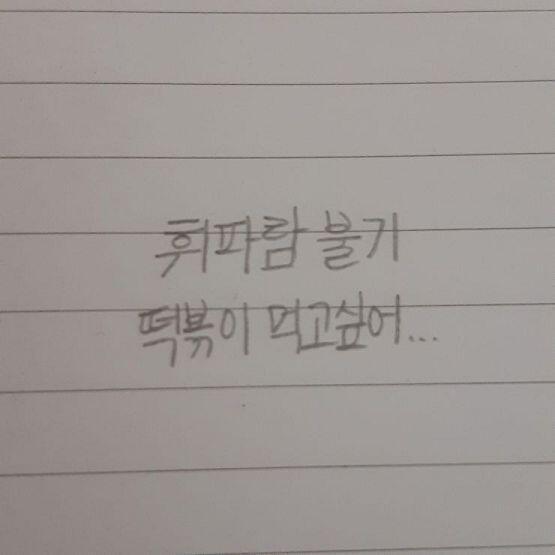 휘파람 불기
떡볶이 먹고싶어...